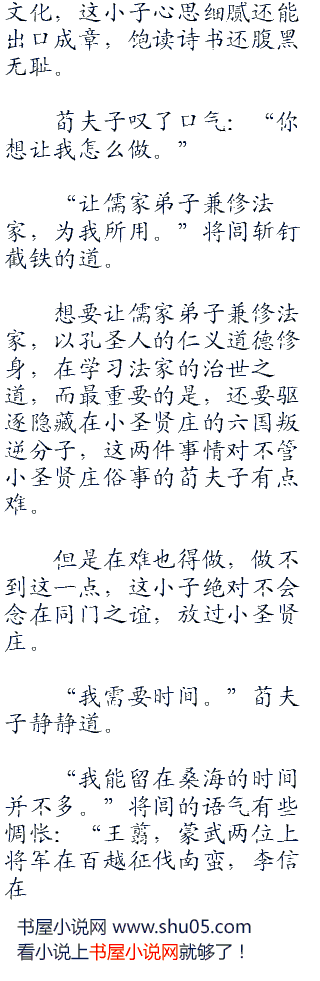 文化，这小子心思细腻还能
出口成章，饱读诗书还腹黑
无耻。
荀夫子叹了口气：“你
想让我怎么做。”
“让儒家弟子兼修法
家，为我所用。”将闾斩钉
截铁的道。
想要让儒家弟子兼修法
家，以孔圣人的仁义道德修
身，在学习法家的治世之
道，而最重要的是，还要驱
逐隐藏在小圣贤庄的六国叛
逆分子，这两件事情对不管
小圣贤庄俗事的荀夫子有点
难。
但是在难也得做，做不
到这一点，这小子绝对不会
念在同门之谊，放过小圣贤
庄。
“我需要时间。”荀夫
子静静道。
“我能留在桑海的时间
并不多。”将闾的语气有些
惆怅：“王翦，蒙武两位上
将军在百越征伐南蛮，李信
在
书屋小说网 www.shu05.com
看小说上书屋小说网就够了！